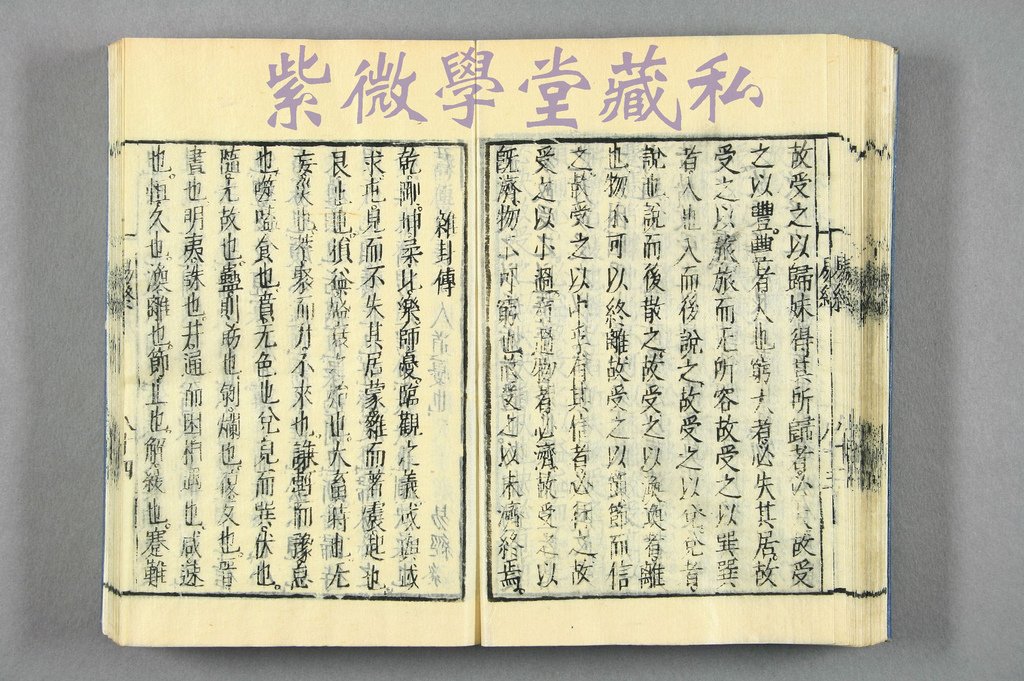 紫微學堂藏私
故受之以歸妹得其所歸者必大故受
之以豐豐者大也窮大者必失其居故
受之以旅旅而无所容故受之以巽巽
者入也入而後說之故受之以兌兌者
說也說而後散之故受之以渙渙者離
也物不可以終離故受之以節節而信
之故受之以中孚有其信者必行之故
受之以小過有過物者必濟故受之以
既濟物不可窮也故受之以未濟終焉。
雜封傳
乾剛坤柔比樂師憂臨觀之義或與或
求屯見而不失其居蒙雜而著震起也
艮止也損益盛衰之始也大畜時也无
妄災也萃聚而升不來也謙輕而豫怠
也噬嗑食也賁无色也兌見而巽伏也。
隨无故也蠱則飭也剝爛也復反也晉
晝也明夷誅也井通而困相遇也咸速
也恒久也渙離也節止也解緩也蹇難